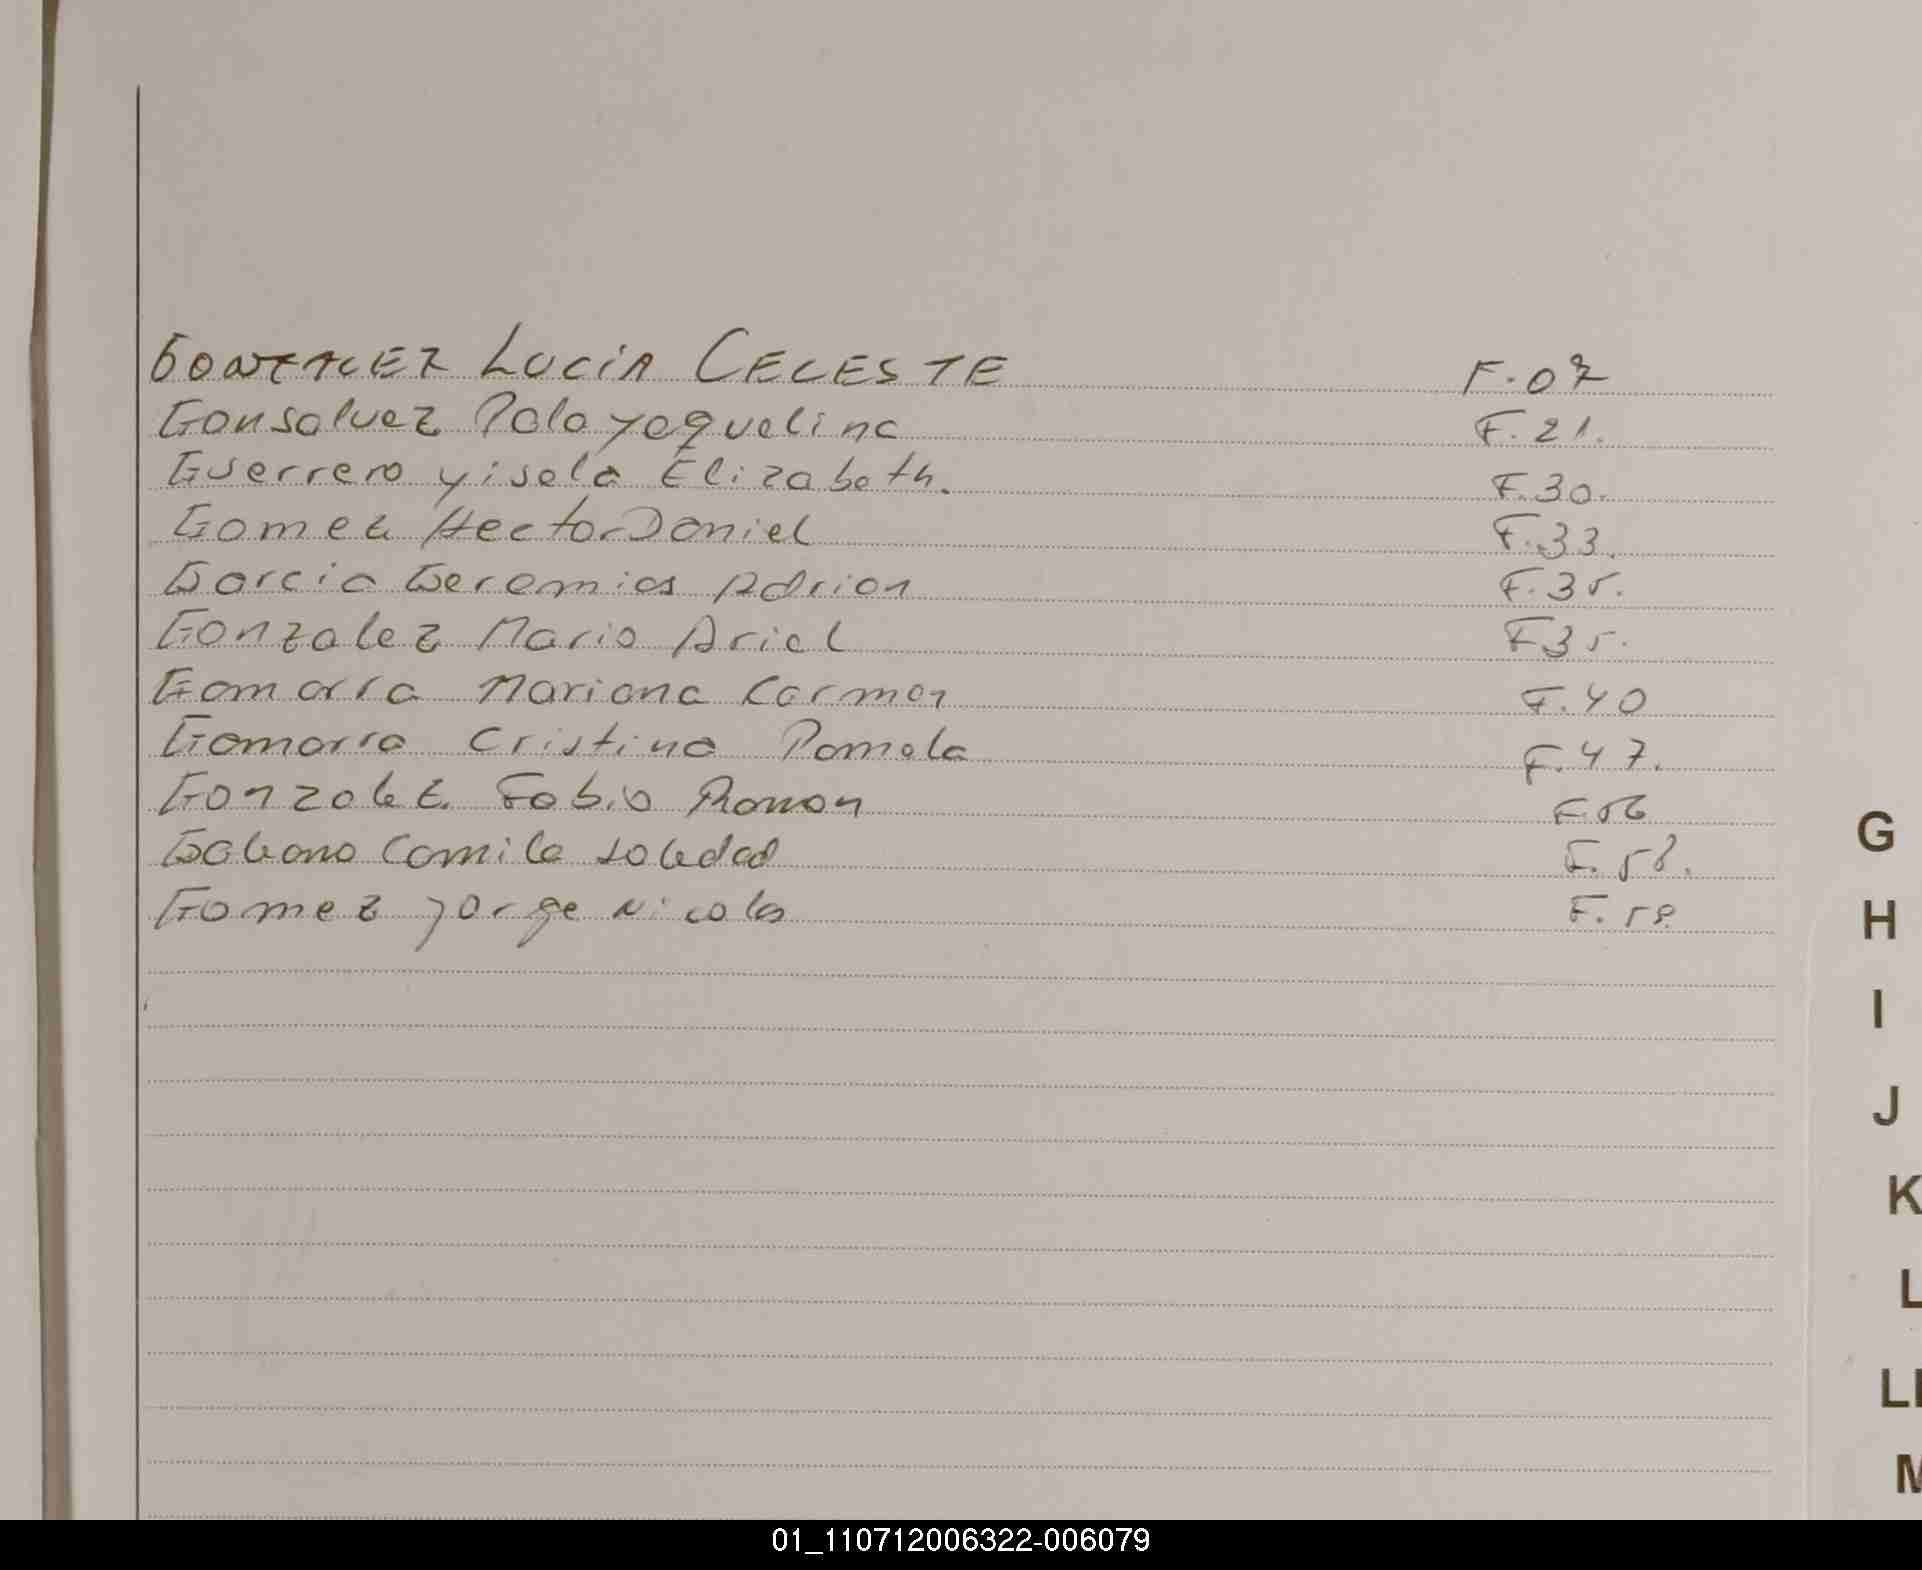 GONZALEZ LUCIA CELESTE F.07
Gonsalvez Pola yequelina F.21.
Guerrero yisela Elizabeth. F.30.
Gomez Hector Daniel F.33.
Garcia Geremias Adrian F.35.
Gonzalez Mario Ariel F35.
Gamarra Mariana Carmen F.40
Gamarra Cristina Pamela F.47.
Gonzalez Fabio Ramon F.56
Galeano Camila Soledad F.58.
Gomez Jorge Nicolas F.59.
G
H
I
J
K
L
LL
M
01_110712006322-006079